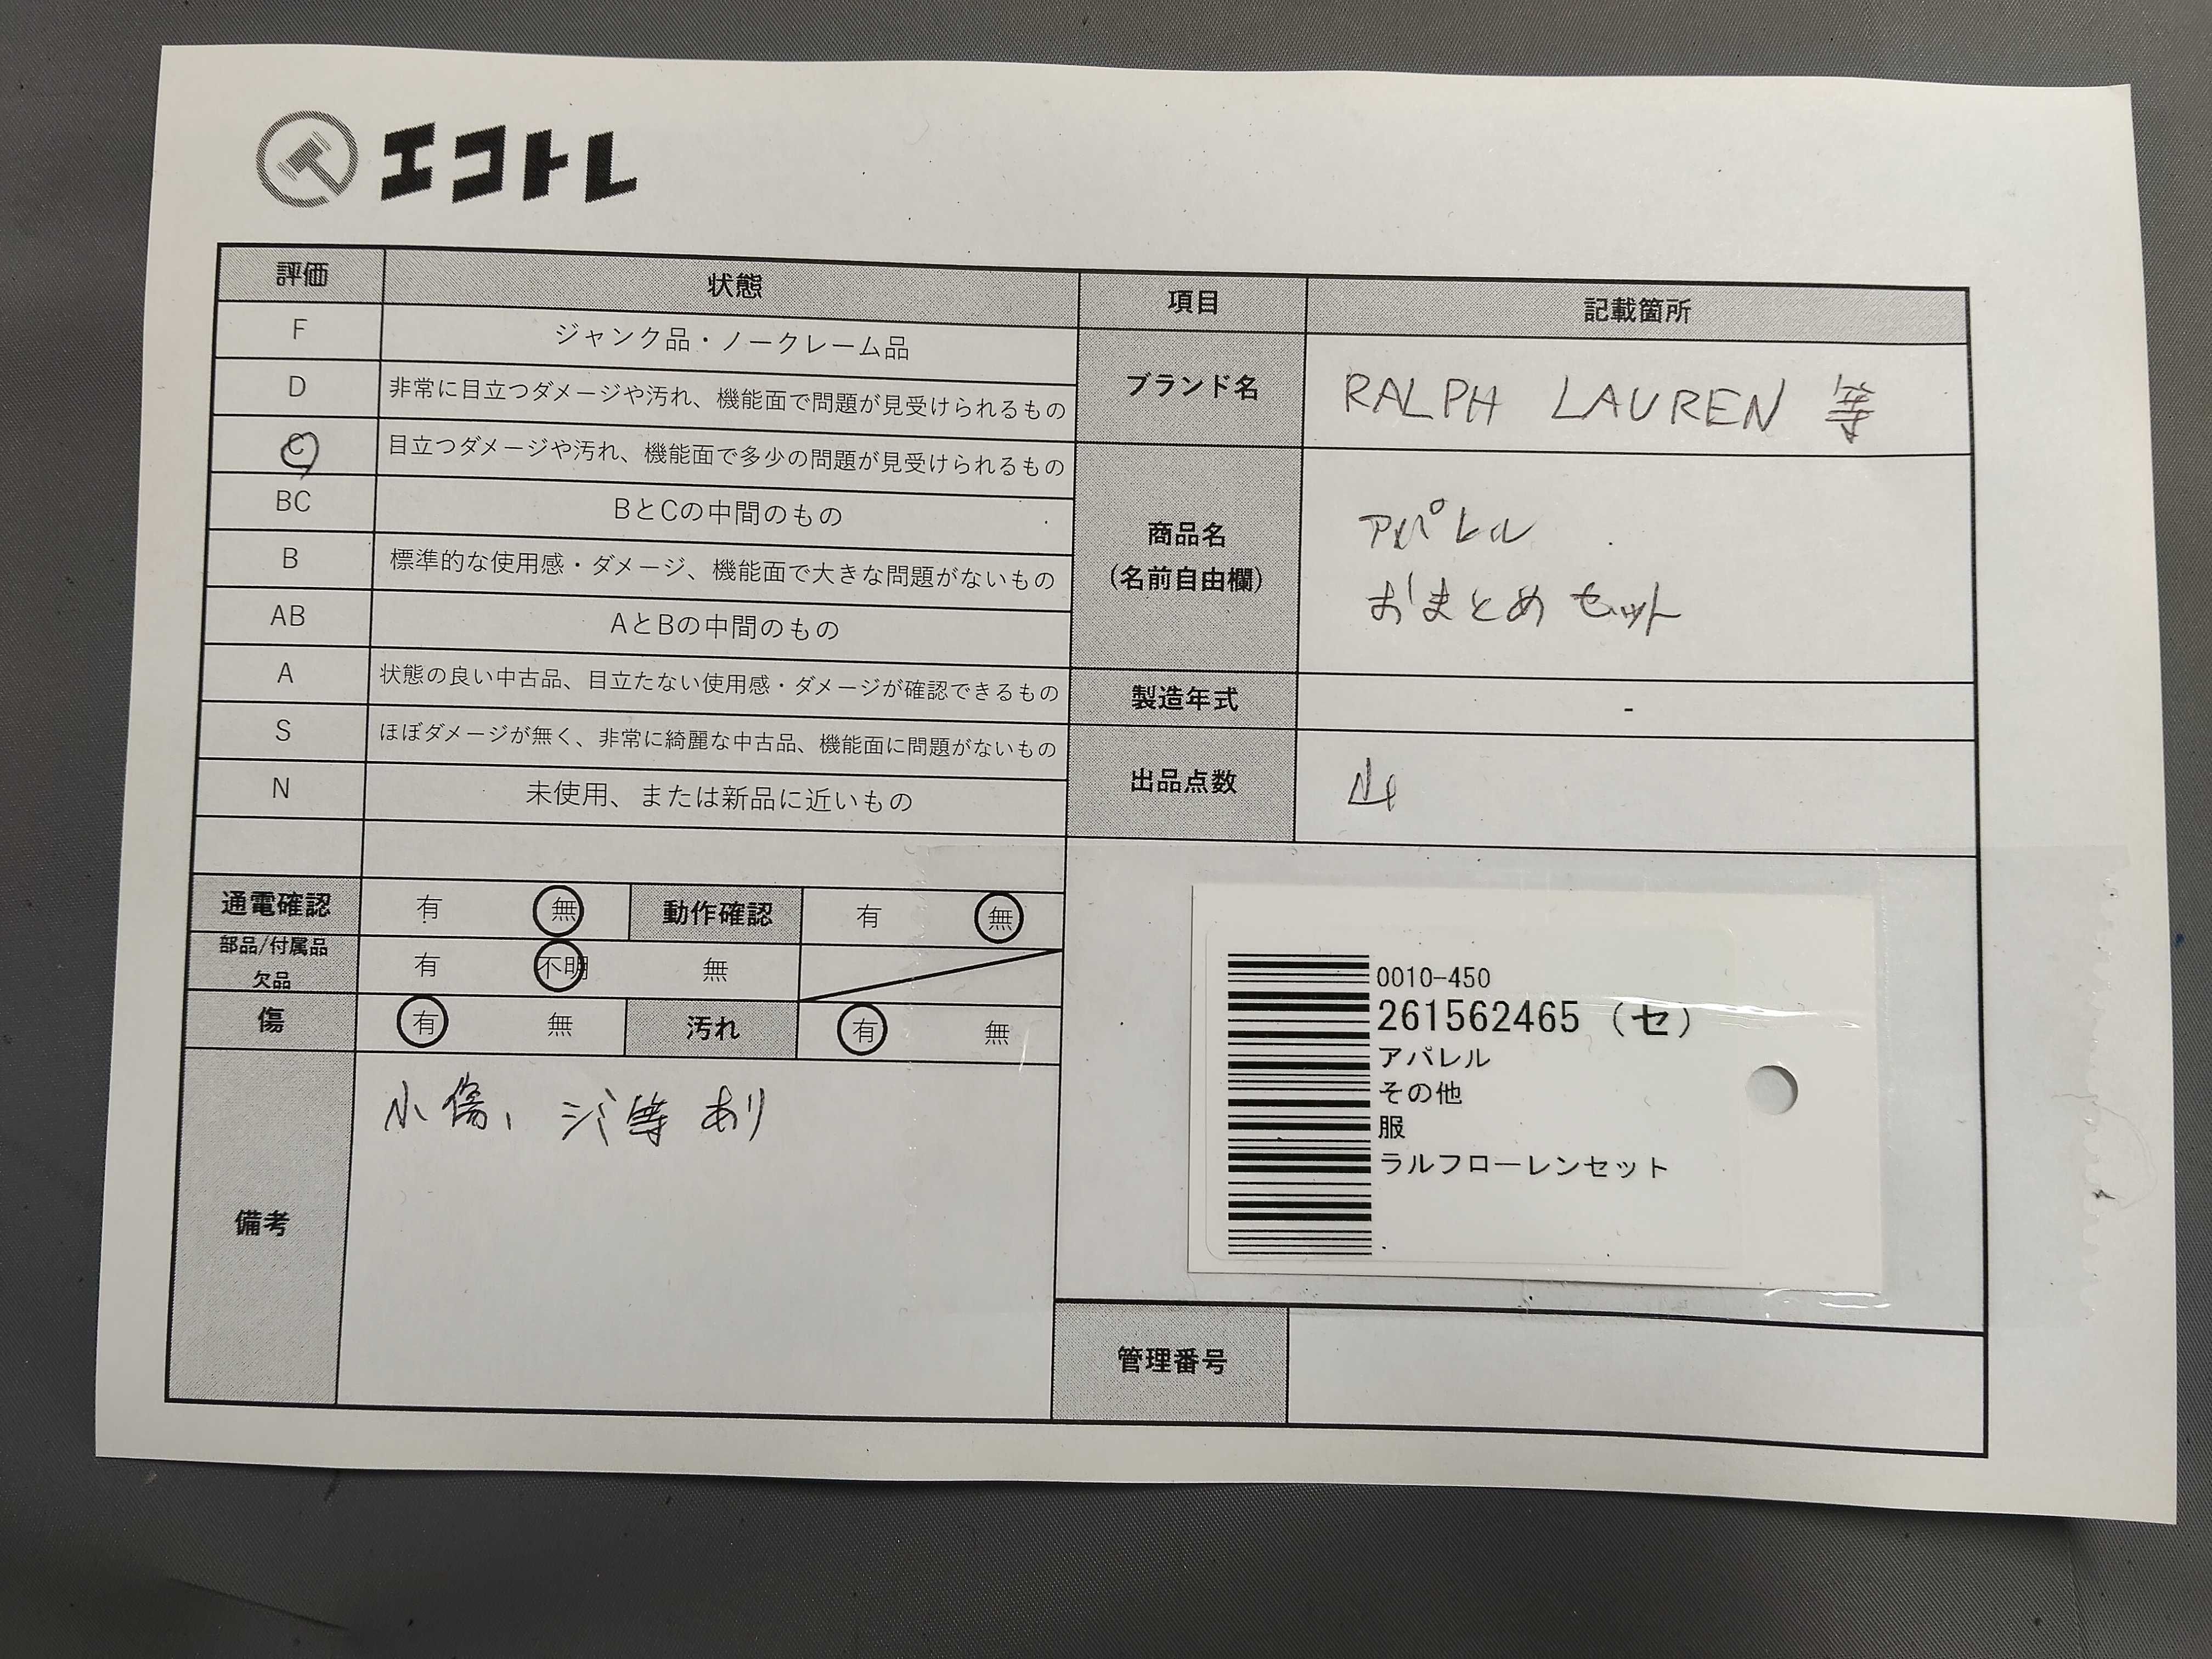 エコトレ
評価 状態 項目 記載箇所
F ジャンク品・ノークレーム品
D 非常に目立つダメージや汚れ、機能面で問題が見受けられるもの
ブランド名 RALPH LAUREN 等
C 目立つダメージや汚れ、機能面で多少の問題が見受けられるもの
BC BとCの中間のもの
商品名
(名前自由欄)
アパレル
おまとめセット
B 標準的な使用感・ダメージ、機能面で大きな問題がないもの
AB AとBの中間のもの
A 状態の良い中古品、目立たない使用感・ダメージが確認できるもの
製造年式 -
S ほぼダメージが無く、非常に綺麗な中古品、機能面に問題がないもの
出品点数 山
N 未使用、または新品に近いもの
通電確認 有 無 動作確認 有 無
部品/付属品
欠品
有 不明 無
傷 有 無 汚れ 有 無
備考
小傷、シミ等あり
0010-450
261562465 (セ)
アパレル
その他
服
ラルフローレンセット
管理番号